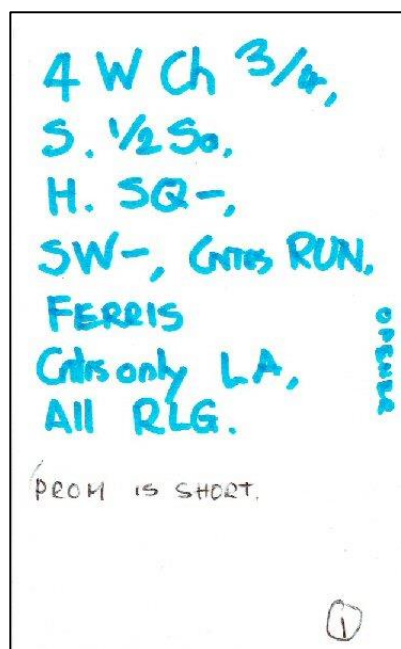 4 W Ch 3/4,
S. 1/2 Sa,
H. SQ-,
SW-, CNTRS RUN,
FERRIS
Cntrs only LA,
All RLG.
OPENER
PROM IS SHORT.
1